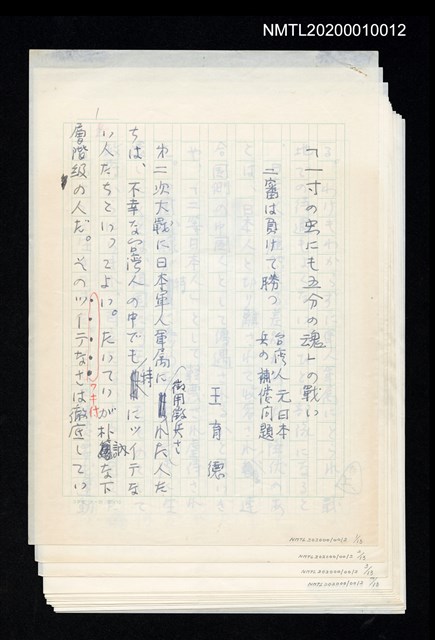 NMTL20200010012
「一寸の虫にも五分の魂」の戦い
二審は負けて勝つ
台湾人元日本
兵の補償問題
王育德
第二次大戦に日本軍人軍属に
された人た
ちは、不幸な台湾人の中でも
特
にツイテな
い人たちといってよい。たいていが朴訥な下
層階級の人だ。そのツイテなさは徹底してい